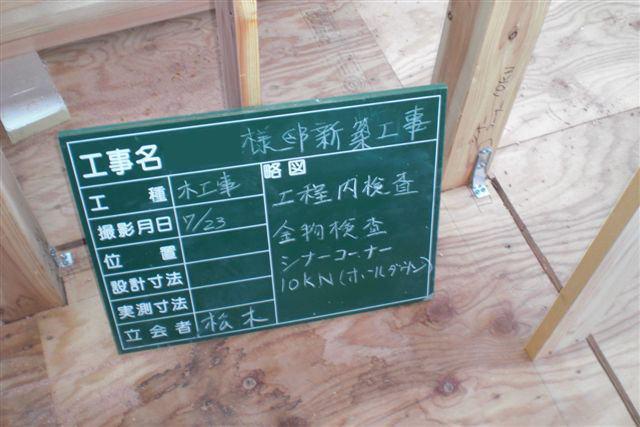 工事名 様邸新築工事
工種 木工事
撮影月日 7/23
位置
設計寸法
実測寸法
立会者 松木
略図
工程内検査
金物検査
シナーコーナー
10KN(ホールダウン)
10KN